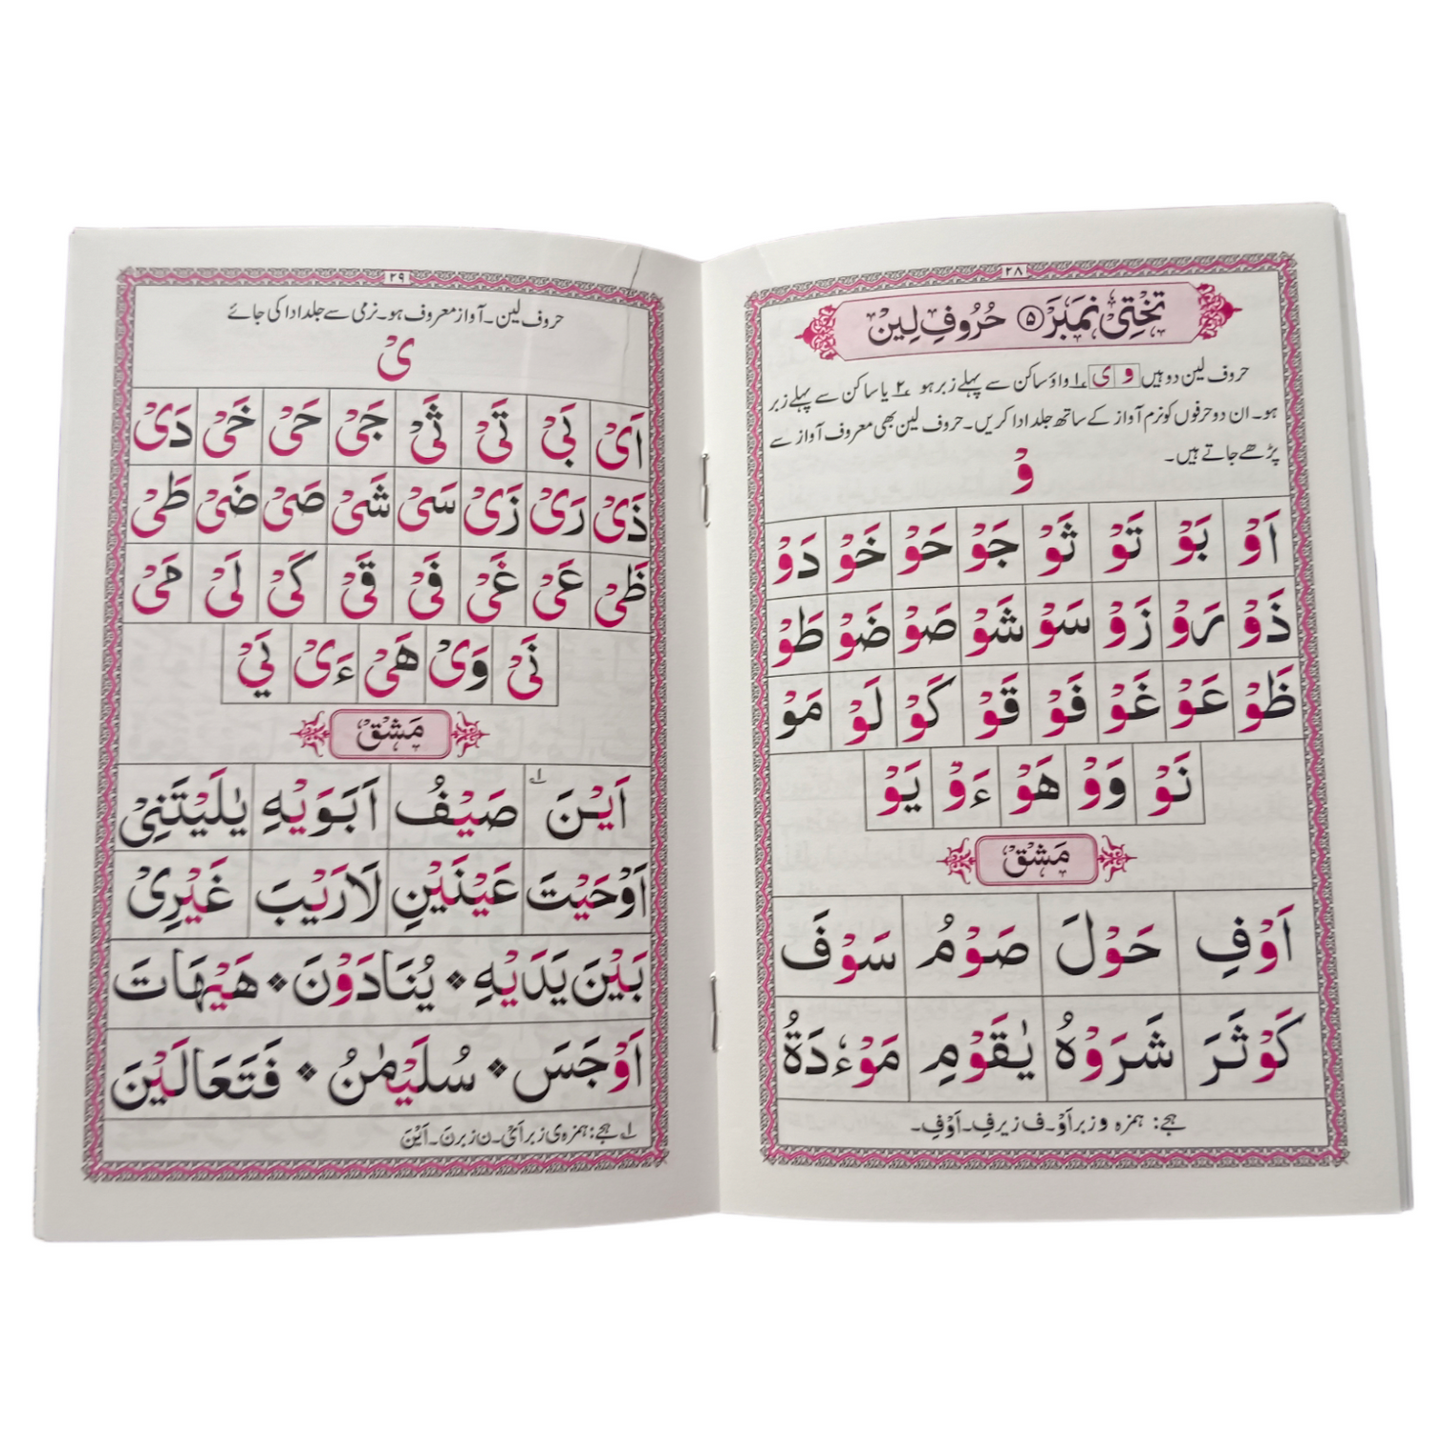 ۲۸
تختی نمبر ۵ حُرُوفِ لِین
حروف لین دو ہیں و ی ۱؎ واؤ ساکن سے پہلے زبر ہو ۲؎ یا ساکن سے پہلے زبر
ہو۔ ان دو حرفوں کو نرم آواز کے ساتھ جلد ادا کریں۔ حروف لین بھی معروف آواز سے
پڑھے جاتے ہیں۔
وْ
اَوْ بَوْ تَوْ ثَوْ جَوْ حَوْ خَوْ دَوْ
ذَوْ رَوْ زَوْ سَوْ شَوْ صَوْ ضَوْ طَوْ
ظَوْ عَوْ غَوْ فَوْ قَوْ كَوْ لَوْ مَوْ
نَوْ وَوْ هَوْ ءَوْ يَوْ
مَشق
اَوْفِ حَوْلَ صَوْمُ سَوْفَ
كَوْثَرَ شَرَوْهُ يٰقَوْمِ مَوْءٗدَةُ
ہجے: ہمزہ و زبر اَوْ۔ ف زیر فِ۔ اَوْفِ۔
۲۹
حروف لین۔ آواز معروف ہو۔ نرمی سے جلد ادا کی جائے
یْ
اَیْ بَیْ تَیْ ثَیْ جَیْ حَیْ خَیْ دَیْ
ذَیْ رَیْ زَیْ سَیْ شَیْ صَیْ ضَیْ طَیْ
ظَیْ عَیْ غَیْ فَیْ قَیْ كَیْ لَیْ مَیْ
نَیْ وَیْ هَیْ ءَیْ يَیْ
مَشق
اَيْنَ ۱؎ صَيْفُ اَبَوَيْهِ يٰلَيْتَنِیْ
اَوْحَيْتَ عَيْنَيْنِ لَا رَيْبَ غَيْرِیْ
بَيْنَ يَدَيْهِ ❖ يُنَادَوْنَ ❖ هَيْهَاتَ
اَوْجَسَ ❖ سُلَيْمٰنُ ❖ فَتَعَالَيْنَ
۱؎ ہجے: ہمزہ ی زبر اَیْ۔ ن زبر نَ۔ اَیْنَ